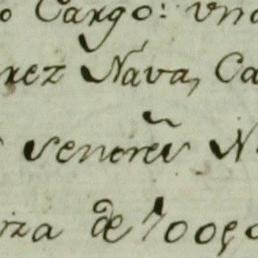 o Cargo: vno
rez Nava, Ca
señores N
za de 700